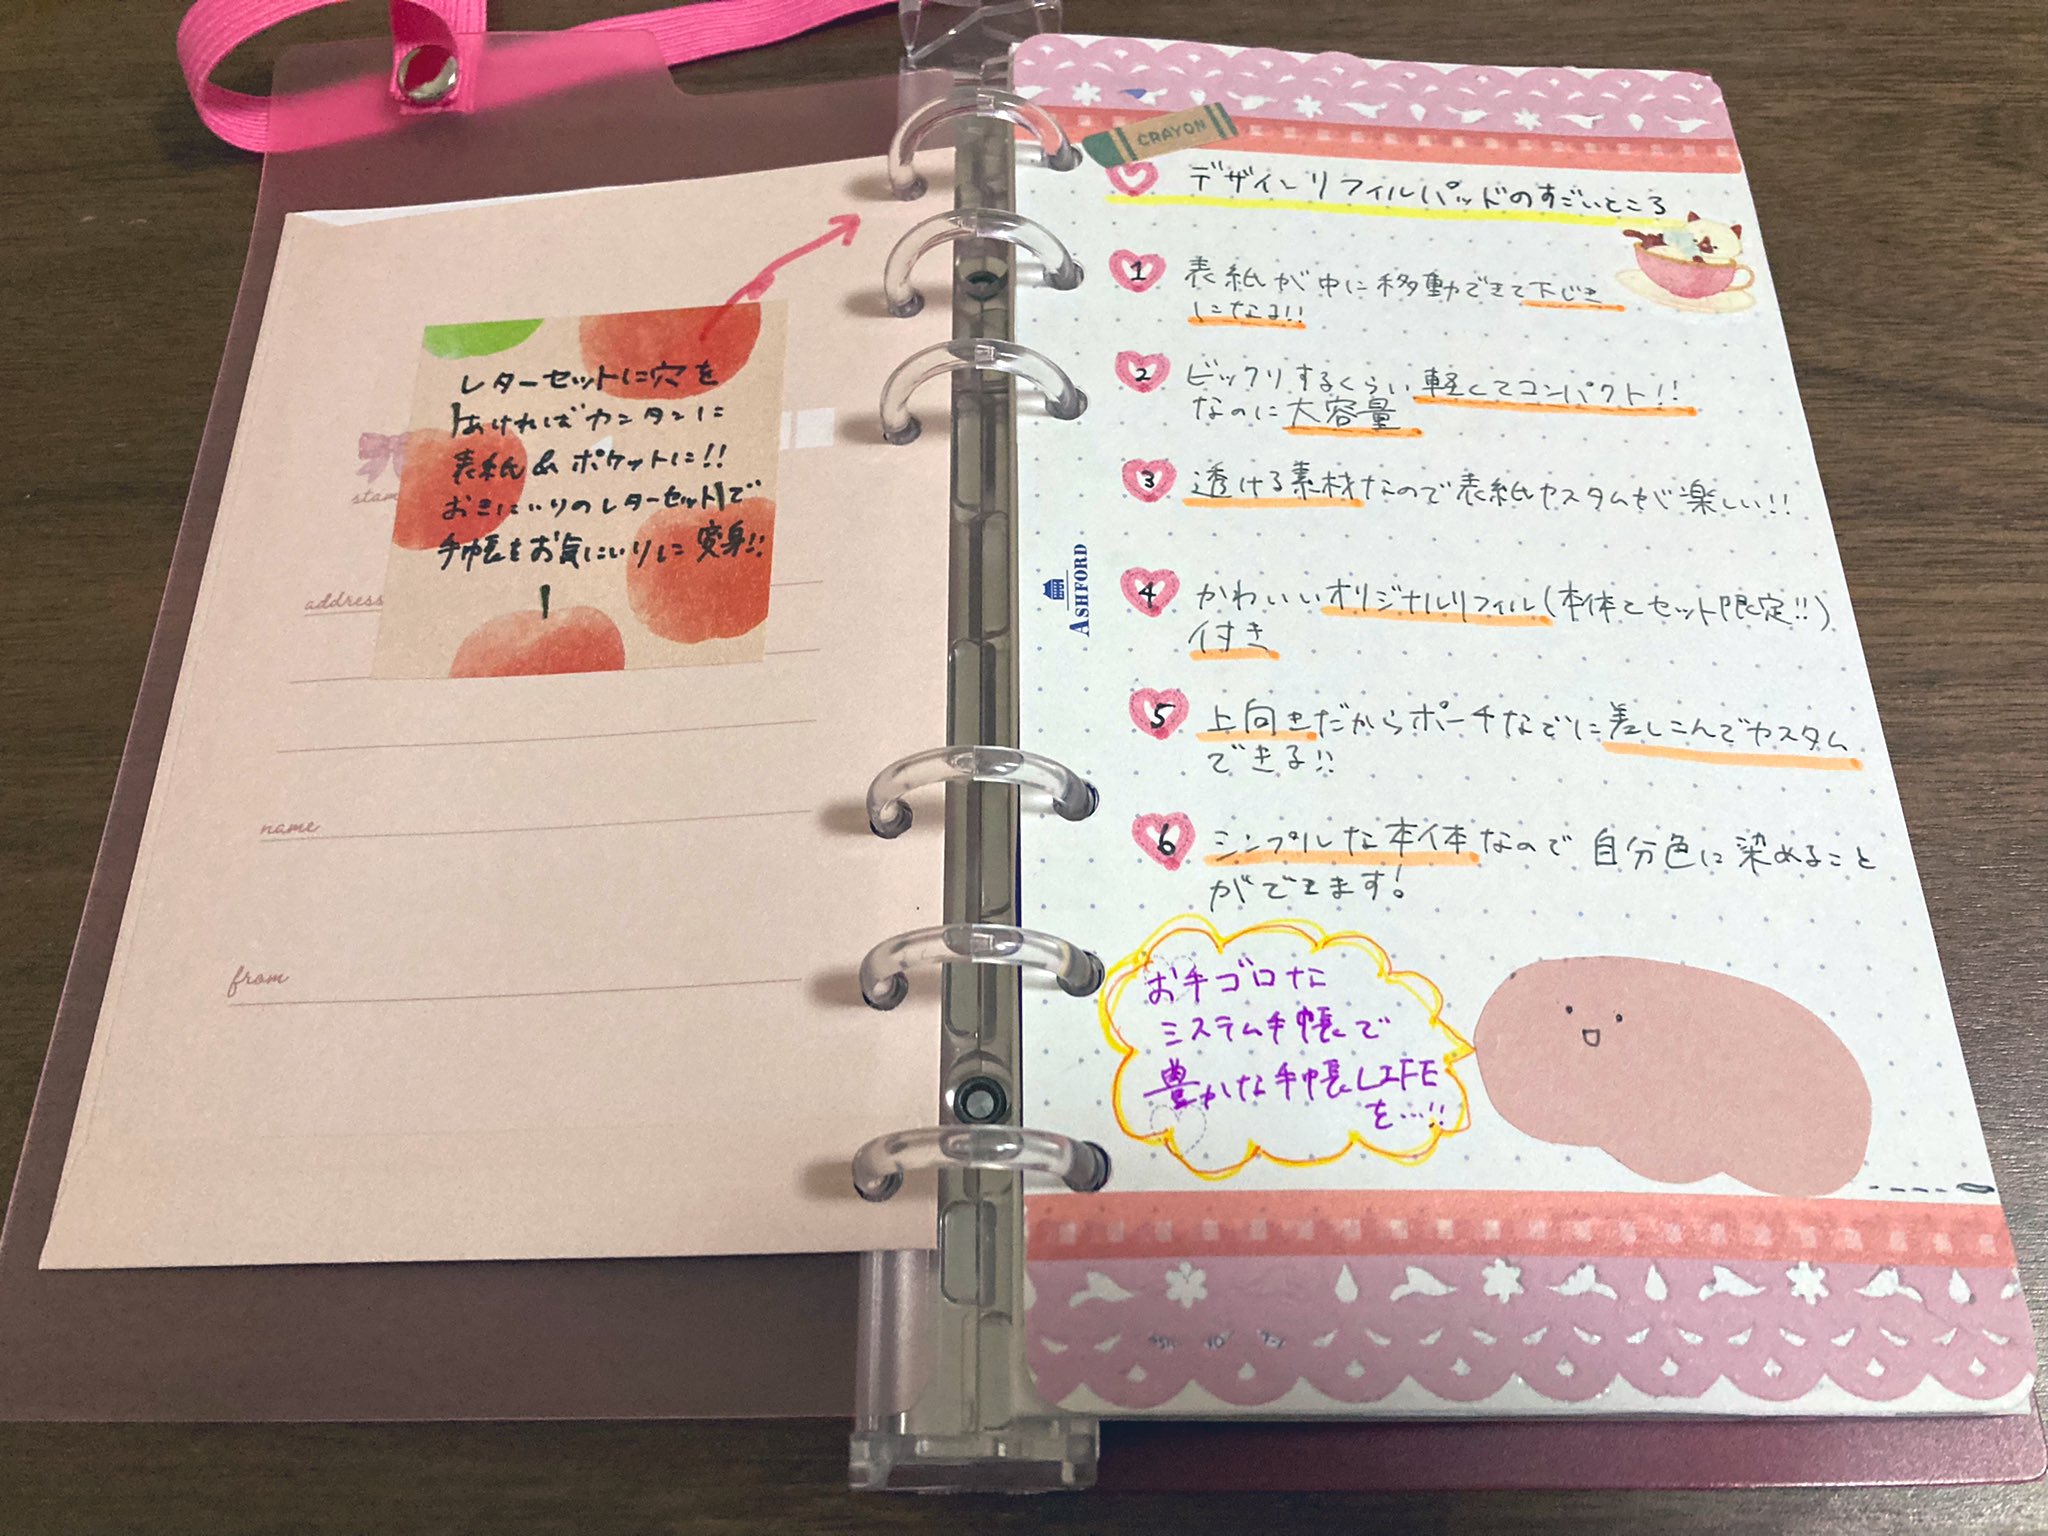 レターセットに穴を
あければカンタンに
表紙&ポケットに!!
おきにいりのレターセットで
手帳をお気にいりに変身!!
stam
address
name
from
CRAYON
デザインリフィルパッドのすごいところ
1 表紙が中に移動できて下じき
になる!!
2 ビックリするくらい軽くてコンパクト!!
なのに大容量
3 透ける素材なので表紙カスタムもが楽しい!!
ASHFORD
4 かわいいオリジナルリフィル(本体とセット限定!!)
付き
5 上向きだからポーチなどに差しこんでカスタム
できる!!
6 シンプルな本体なので自分色に染めること
ができます!
お手ゴロな
システム手帳で
豊かな手帳LIFE
を…!!